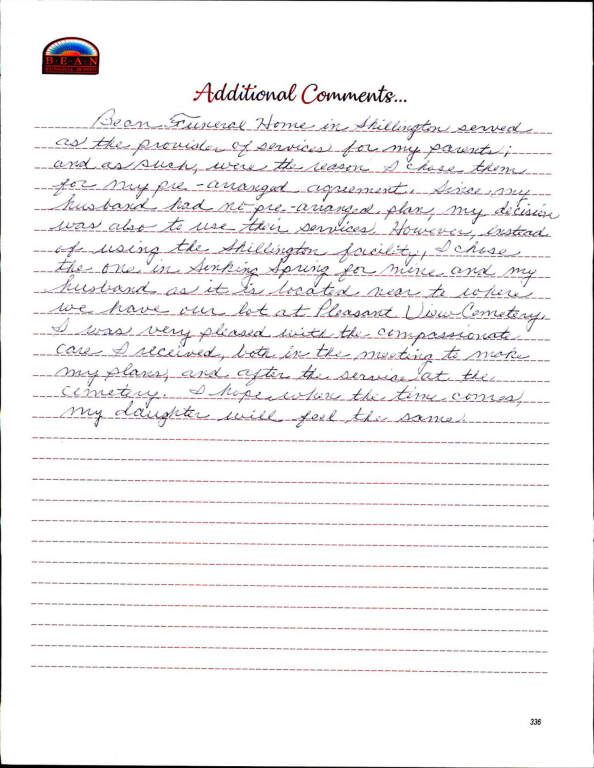 BEAN
Additional Comments...
Bean Funeral Home in Shillington served
as the provider of services for my parents;
and as such, were the reason I chose them
for my pre-arranged agreement. Since, my
husband had no pre-arranged plan, my decision
was also to use their services. However, instead
of using the Shillington facility, I chose
the one in Sinking Spring for mine and my
husband as it is located near to where
we have our lot at Pleasant View Cemetery.
I was very pleased with the compassionate
care I received, both in the meeting to make
my plans, and after the service at the
cemetery. I hope when the time comes,
my daughter will feel the same.
336